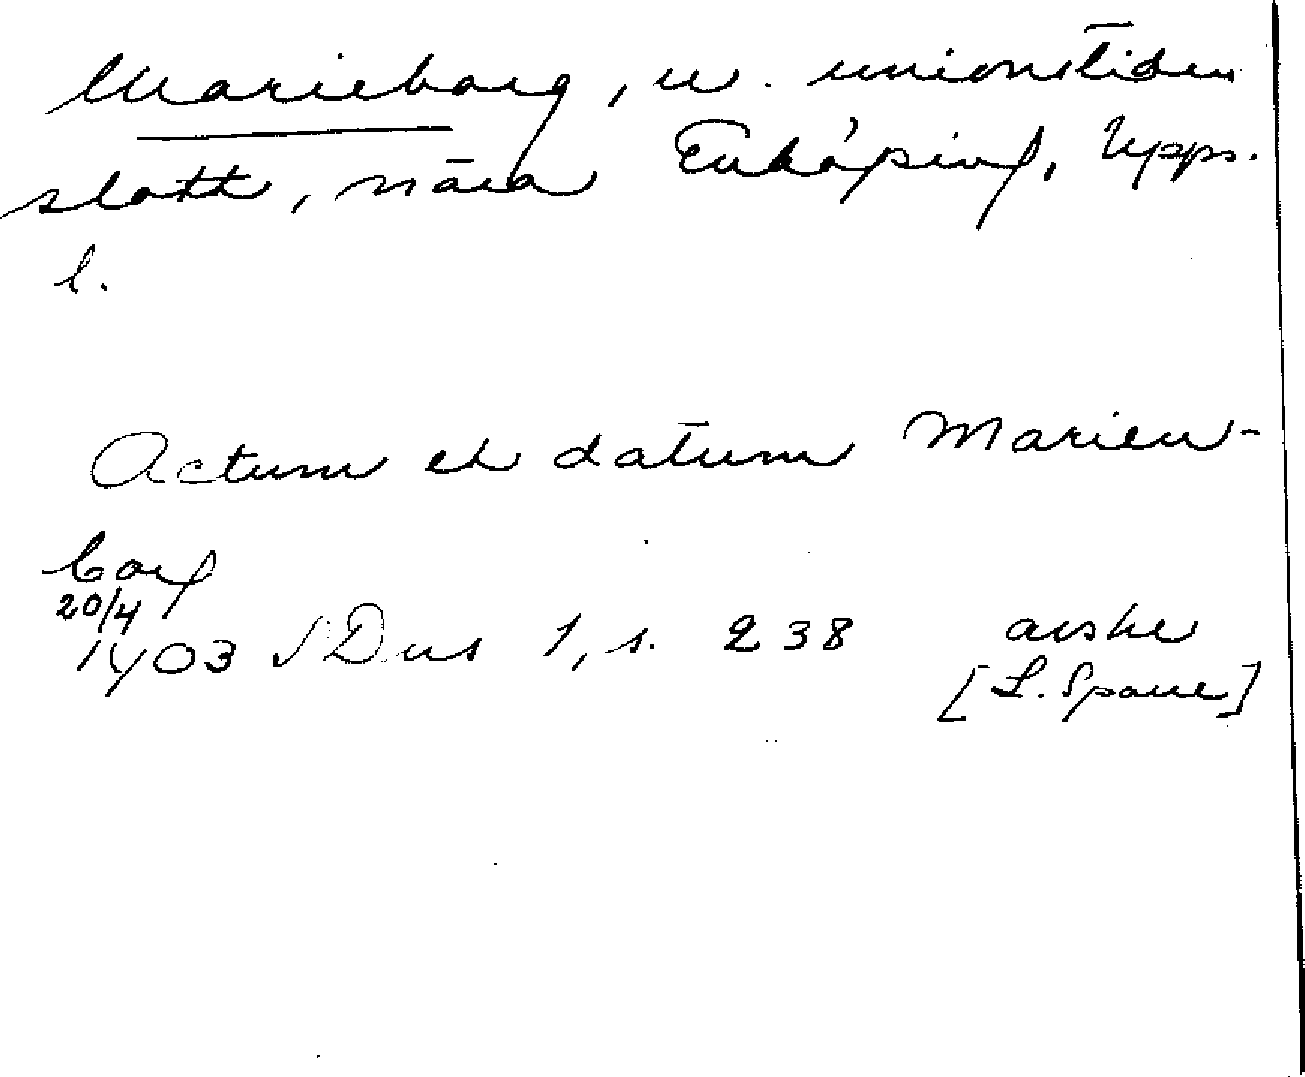 Marieborg, u. unionstiden
slott, nära Enköping, Upps.
l.
Actum et datum Marien-
borg
20/4
1403 SDns 1, s. 238 avskr
[L. Sparre]